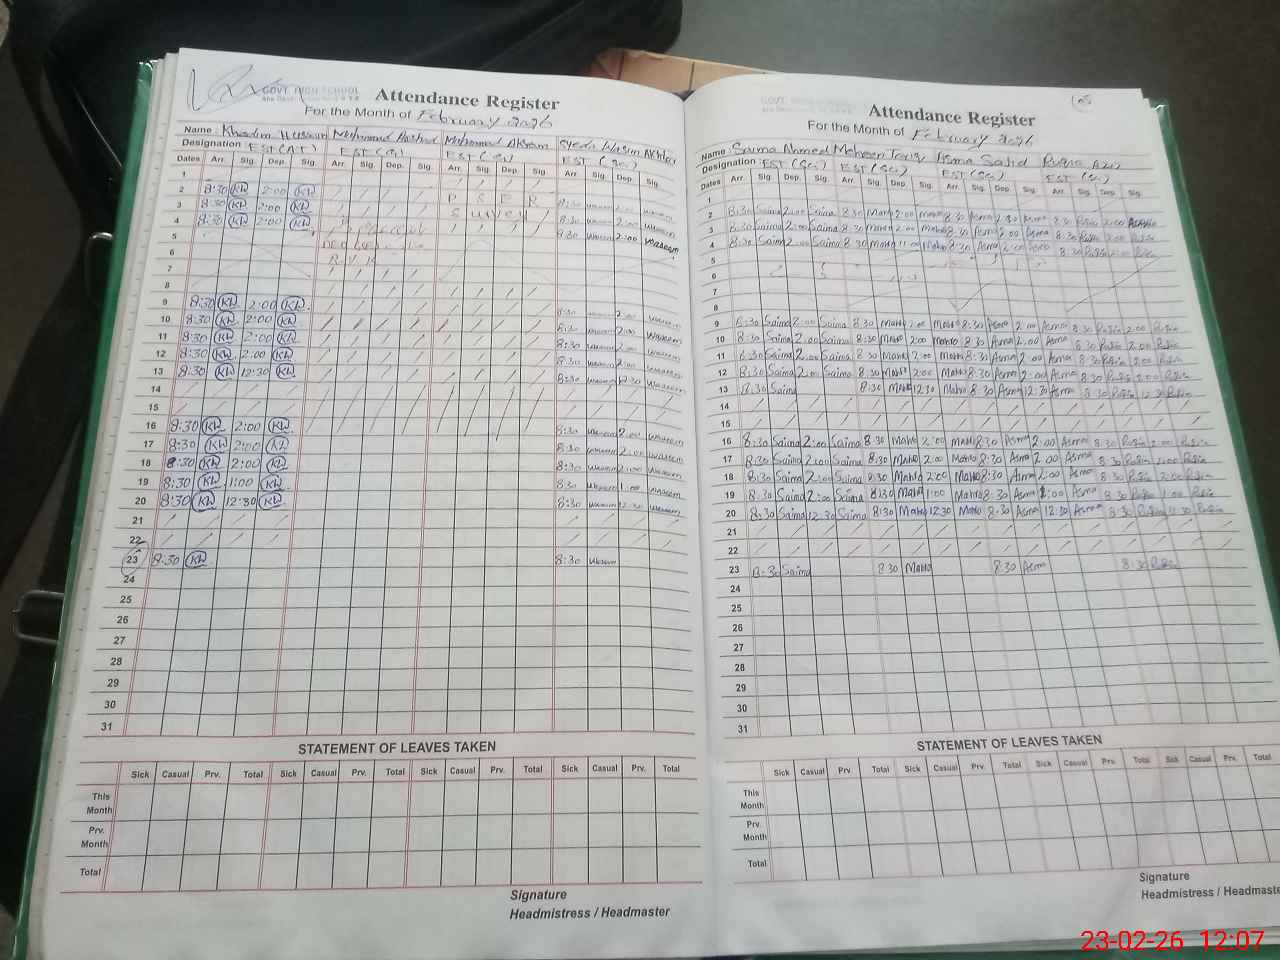 GOVT. HIGH SCHOOL
Attendance Register
For the Month of February 2026
Name Khadim Hussain Muhammad Rashid Muhammad Akram Syeda Wasim Akhter
Designation EST (AT) EST EST EST (Sc)
Dates Arr. Sig. Dep. Sig. Arr. Sig. Dep. Sig. Arr. Sig. Dep. Sig. Arr. Sig. Dep. Sig.
1
2 8:30 KH 2:00 KH P S E R 8:30 Waseem 2:00 Waseem
3 8:30 KH 2:00 KH Survey 8:30 Waseem 2:00 Waseem
4 8:30 KH 2:00 KH 8:30 Waseem 2:00 Waseem
5
6
7
8
9 8:30 KH 2:00 KH 8:30 Waseem 2:00 Waseem
10 8:30 KH 2:00 KH 8:30 Waseem 2:00 Waseem
11 8:30 KH 2:00 KH 8:30 Waseem 2:00 Waseem
12 8:30 KH 2:00 KH 8:30 Waseem 2:00 Waseem
13 8:30 KH 12:30 KH 8:30 Waseem 12:30 Waseem
14
15
16 8:30 KH 2:00 KH 8:30 Waseem 2:00 Waseem
17 8:30 KH 2:00 KH 8:30 Waseem 2:00 Waseem
18 8:30 KH 2:00 KH 8:30 Waseem 2:00 Waseem
19 8:30 KH 1:00 KH 8:30 Waseem 1:00 Waseem
20 8:30 KH 12:30 KH 8:30 Waseem 12:30 Waseem
21
22
23 8:30 KH 8:30 Waseem
24
25
26
27
28
29
30
31
STATEMENT OF LEAVES TAKEN
Sick Casual Prv. Total Sick Casual Prv. Total Sick Casual Prv. Total Sick Casual Prv. Total
This Month
Prv. Month
Total
Signature
Headmistress / Headmaster
Attendance Register
For the Month of February 2026
Name Saima Ahmed Maheen Tariq Asma Sajid Rubia Aziz
Designation EST (Sc) EST (Sc) EST (Sc) EST (Sc)
Dates Arr. Sig. Dep. Sig. Arr. Sig. Dep. Sig. Arr. Sig. Dep. Sig. Arr. Sig. Dep. Sig.
1
2 8:30 Saima 2:00 Saima 8:30 Mahro 2:00 Mahro 8:30 Asma 2:00 Asma 8:30 Rubia 2:00 Rubia
3 8:30 Saima 2:00 Saima 8:30 Mahro 2:00 Mahro 8:30 Asma 2:00 Asma 8:30 Rubia 2:00 Rubia
4 8:30 Saima 2:00 Saima 8:30 Mahro 11:00 Mahro 8:30 Asma 2:00 Asma 8:30 Rubia 2:00 Rubia
5
6
7
8
9 8:30 Saima 2:00 Saima 8:30 Mahro 2:00 Mahro 8:30 Asma 2:00 Asma 8:30 Rubia 2:00 Rubia
10 8:30 Saima 2:00 Saima 8:30 Mahro 2:00 Mahro 8:30 Asma 2:00 Asma 8:30 Rubia 2:00 Rubia
11 8:30 Saima 2:00 Saima 8:30 Mahro 2:00 Mahro 8:30 Asma 2:00 Asma 8:30 Rubia 2:00 Rubia
12 8:30 Saima 2:00 Saima 8:30 Mahro 2:00 Mahro 8:30 Asma 2:00 Asma 8:30 Rubia 2:00 Rubia
13 8:30 Saima 8:30 Mahro 12:30 Mahro 8:30 Asma 12:30 Asma 8:30 Rubia 12:30 Rubia
14
15
16 8:30 Saima 2:00 Saima 8:30 Mahro 2:00 Mahro 8:30 Asma 2:00 Asma 8:30 Rubia 2:00 Rubia
17 8:30 Saima 2:00 Saima 8:30 Mahro 2:00 Mahro 8:30 Asma 2:00 Asma 8:30 Rubia 2:00 Rubia
18 8:30 Saima 2:00 Saima 8:30 Mahro 2:00 Mahro 8:30 Asma 2:00 Asma 8:30 Rubia 2:00 Rubia
19 8:30 Saima 2:00 Saima 8:30 Mahro 1:00 Mahro 8:30 Asma 2:00 Asma 8:30 Rubia 1:00 Rubia
20 8:30 Saima 12:30 Saima 8:30 Mahro 12:30 Mahro 8:30 Asma 12:30 Asma 8:30 Rubia 12:30 Rubia
21
22
23 8:30 Saima 8:30 Mahro 8:30 Asma 8:30 Rubia
24
25
26
27
28
29
30
31
STATEMENT OF LEAVES TAKEN
Sick Casual Prv. Total Sick Casual Prv. Total Sick Casual Prv. Total Sick Casual Prv. Total
This Month
Prv. Month
Total
Signature
Headmistress / Headmaster
23-02-26 12:07